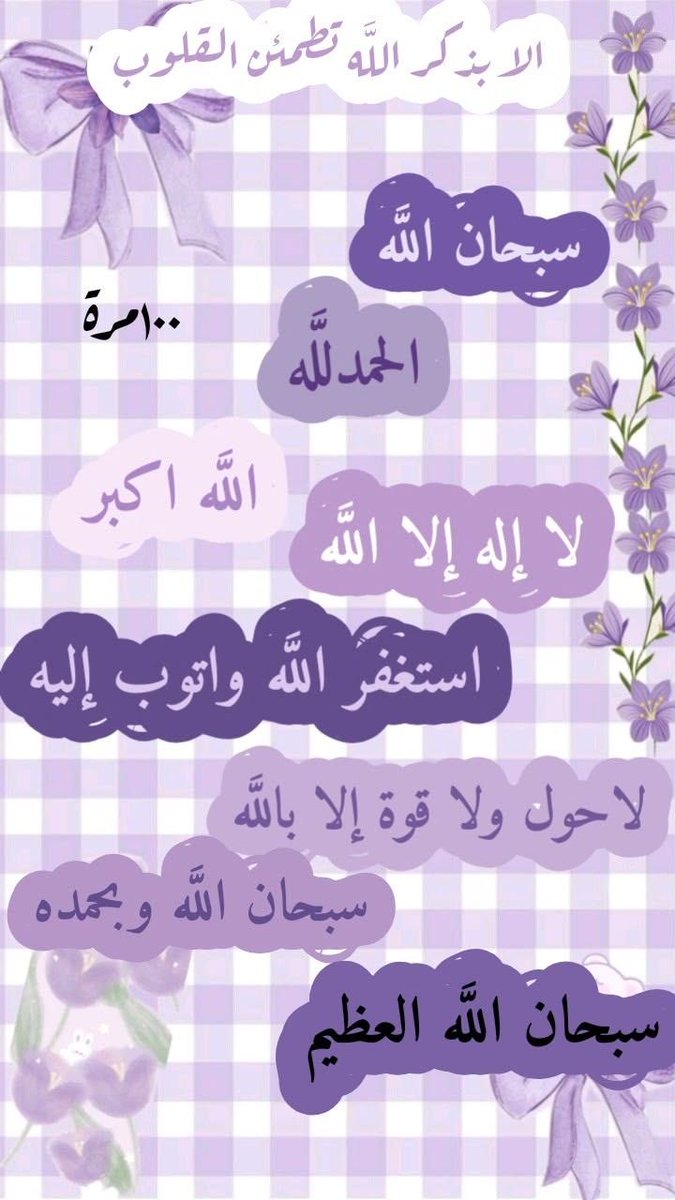 الا بذكر اللَّه تطمئن القلوب
سبحان اللَّه
١٠٠مرة
الحمدللَّه
اللَّه اكبر
لا إله إلا اللَّه
استغفر اللَّه واتوب إليه
لاحول ولا قوة إلا باللَّه
سبحان اللَّه وبحمده
سبحان اللَّه العظيم